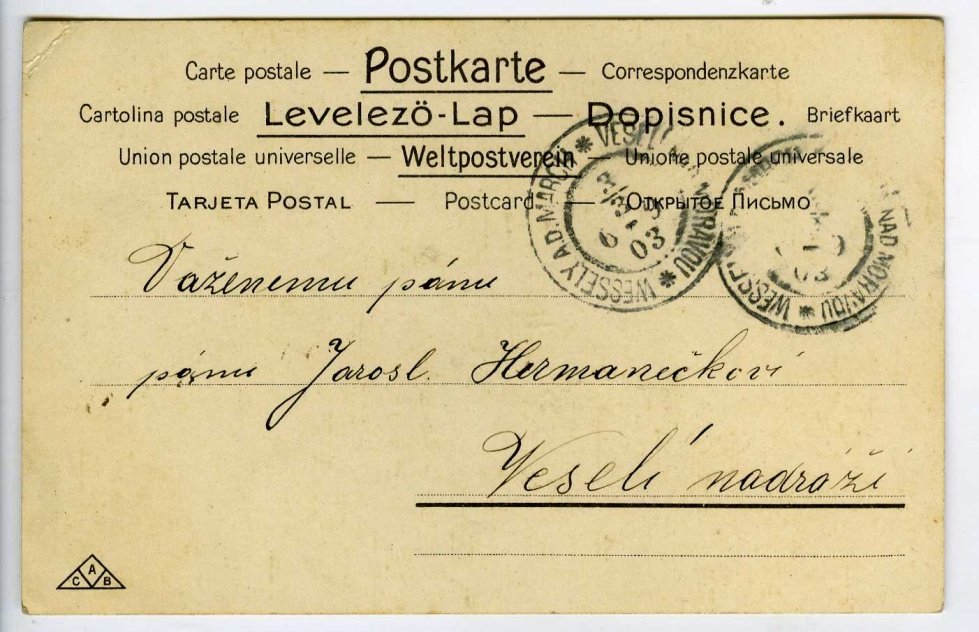 Carte postale — Postkarte — Correspondenzkarte
Cartolina postale Levelezö-Lap — Dopisnice. Briefkaart
Union postale universelle — Weltpostverein — Unione postale universale
TARJETA POSTAL — Postcard — ОТКРЫТОЕ ПИСЬМО
WESSELY A.D. MARCH * VESELÍ NAD MORAVOU *
6 03
NAD MORAVOU * WESSELY
03
Váženému pánu
pánu Jarosl. Hermanečkovi
Veselí nadráží
C A B